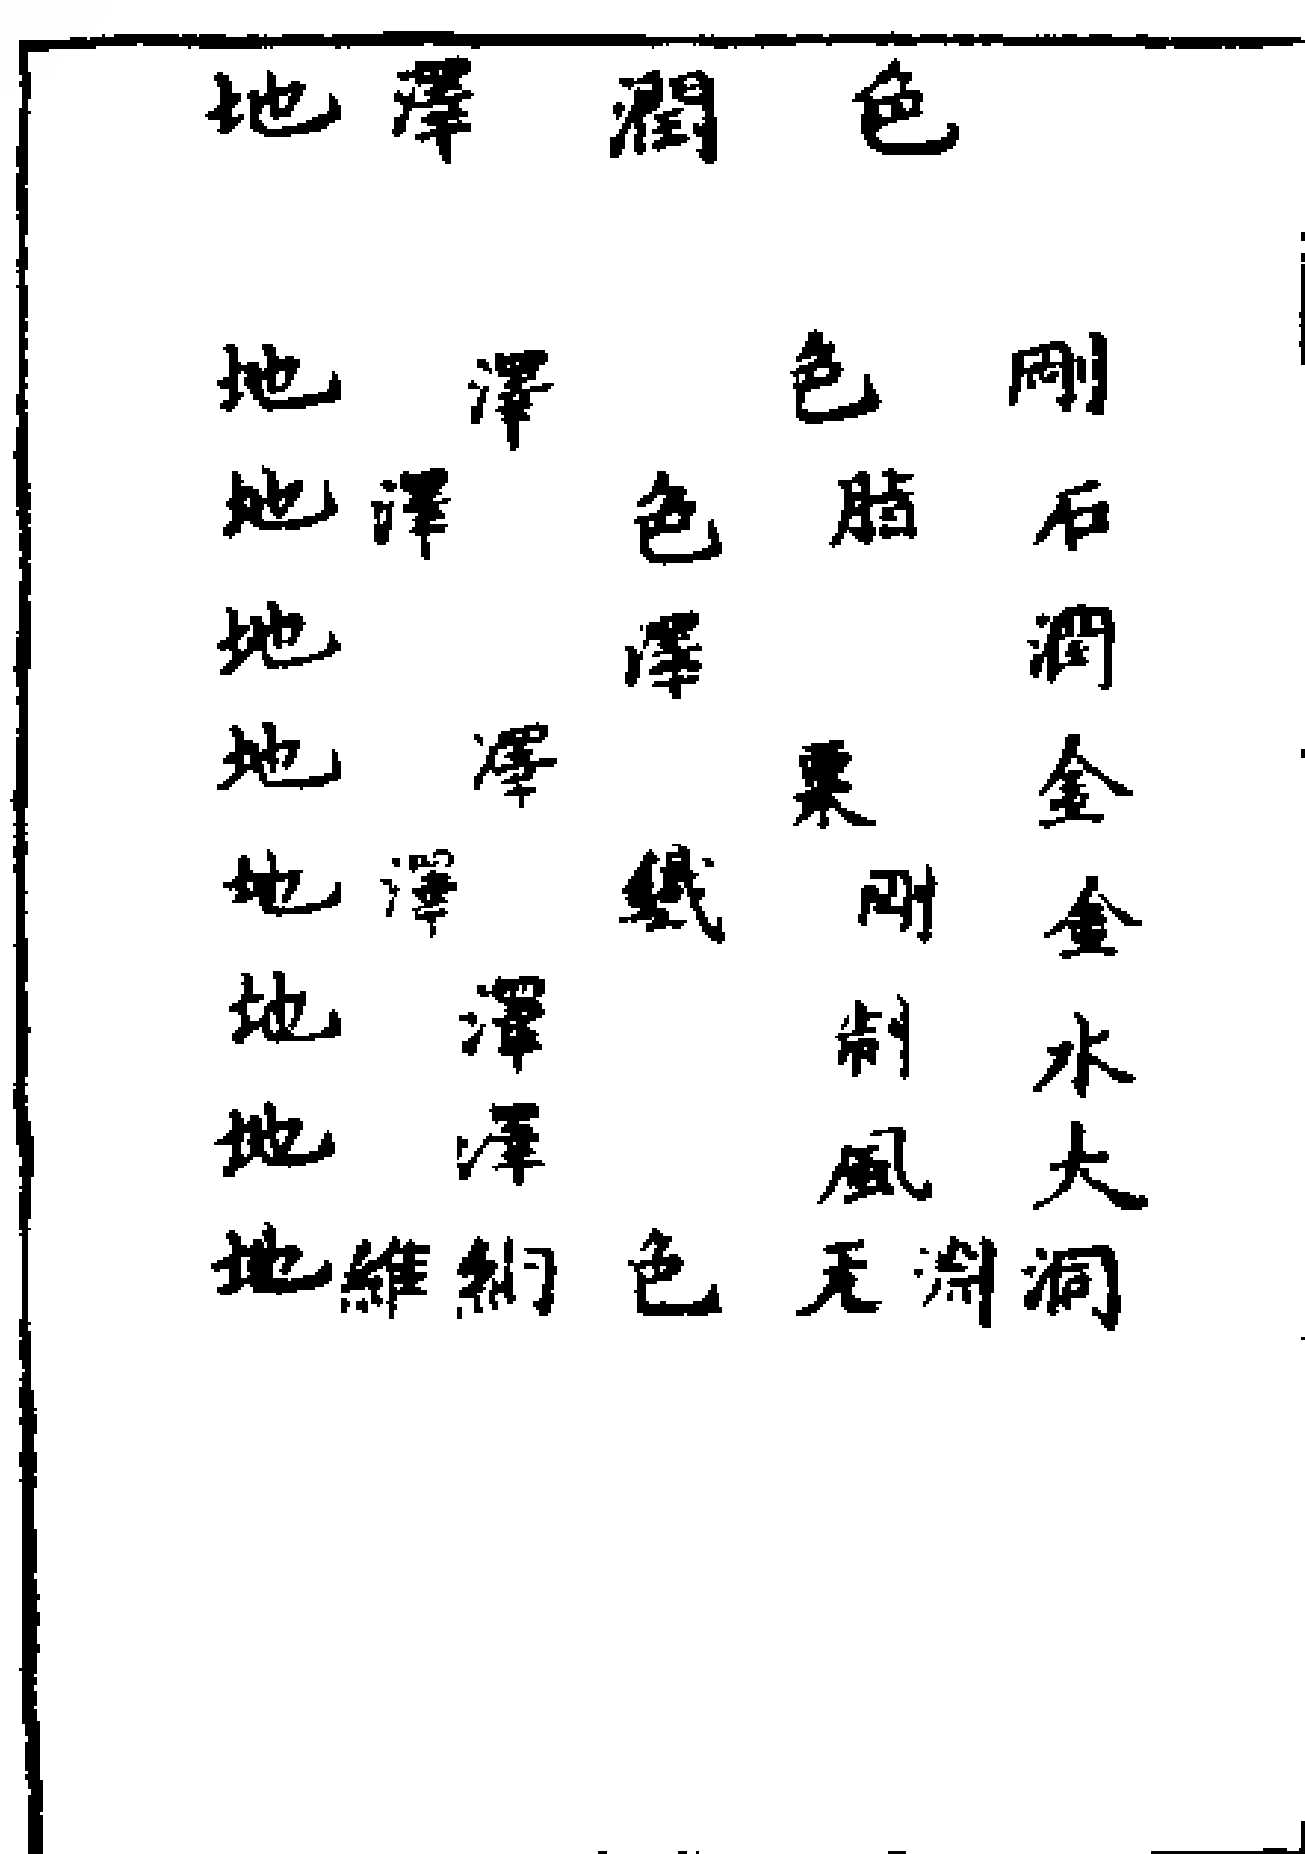 地澤潤色
地澤色剛
地澤色脂石
地澤潤
地澤栗金
地澤剛金
地澤制水
地澤風大
地維絢色无淵洞